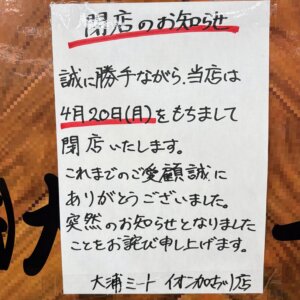 閉店のお知らせ
誠に勝手ながら、当店は
4月20日(月)をもちまして
閉店いたします。
これまでのご愛顧誠に
ありがとうございました。
突然のお知らせとなりました
ことをお詫び申し上げます。
大浦ミート イオン加古川店